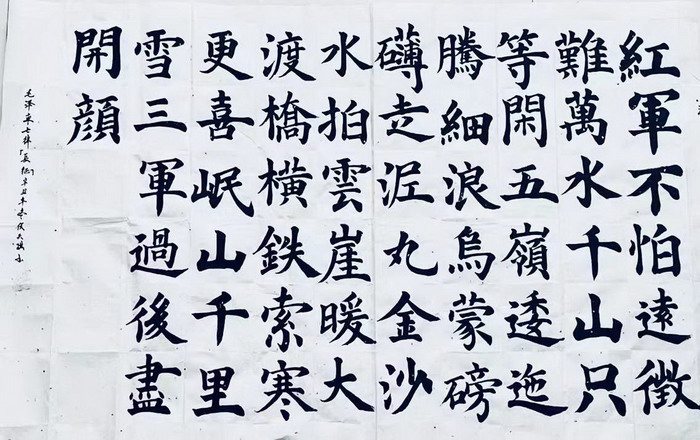 紅軍不怕遠徵
難萬水千山只
等閑五嶺逶迤
騰細浪烏蒙磅
礴走泥丸金沙
水拍雲崖暖大
渡橋橫鉄索寒
更喜岷山千里
雪三軍過後盡
開顏
毛澤東七律「長征」辛丑年